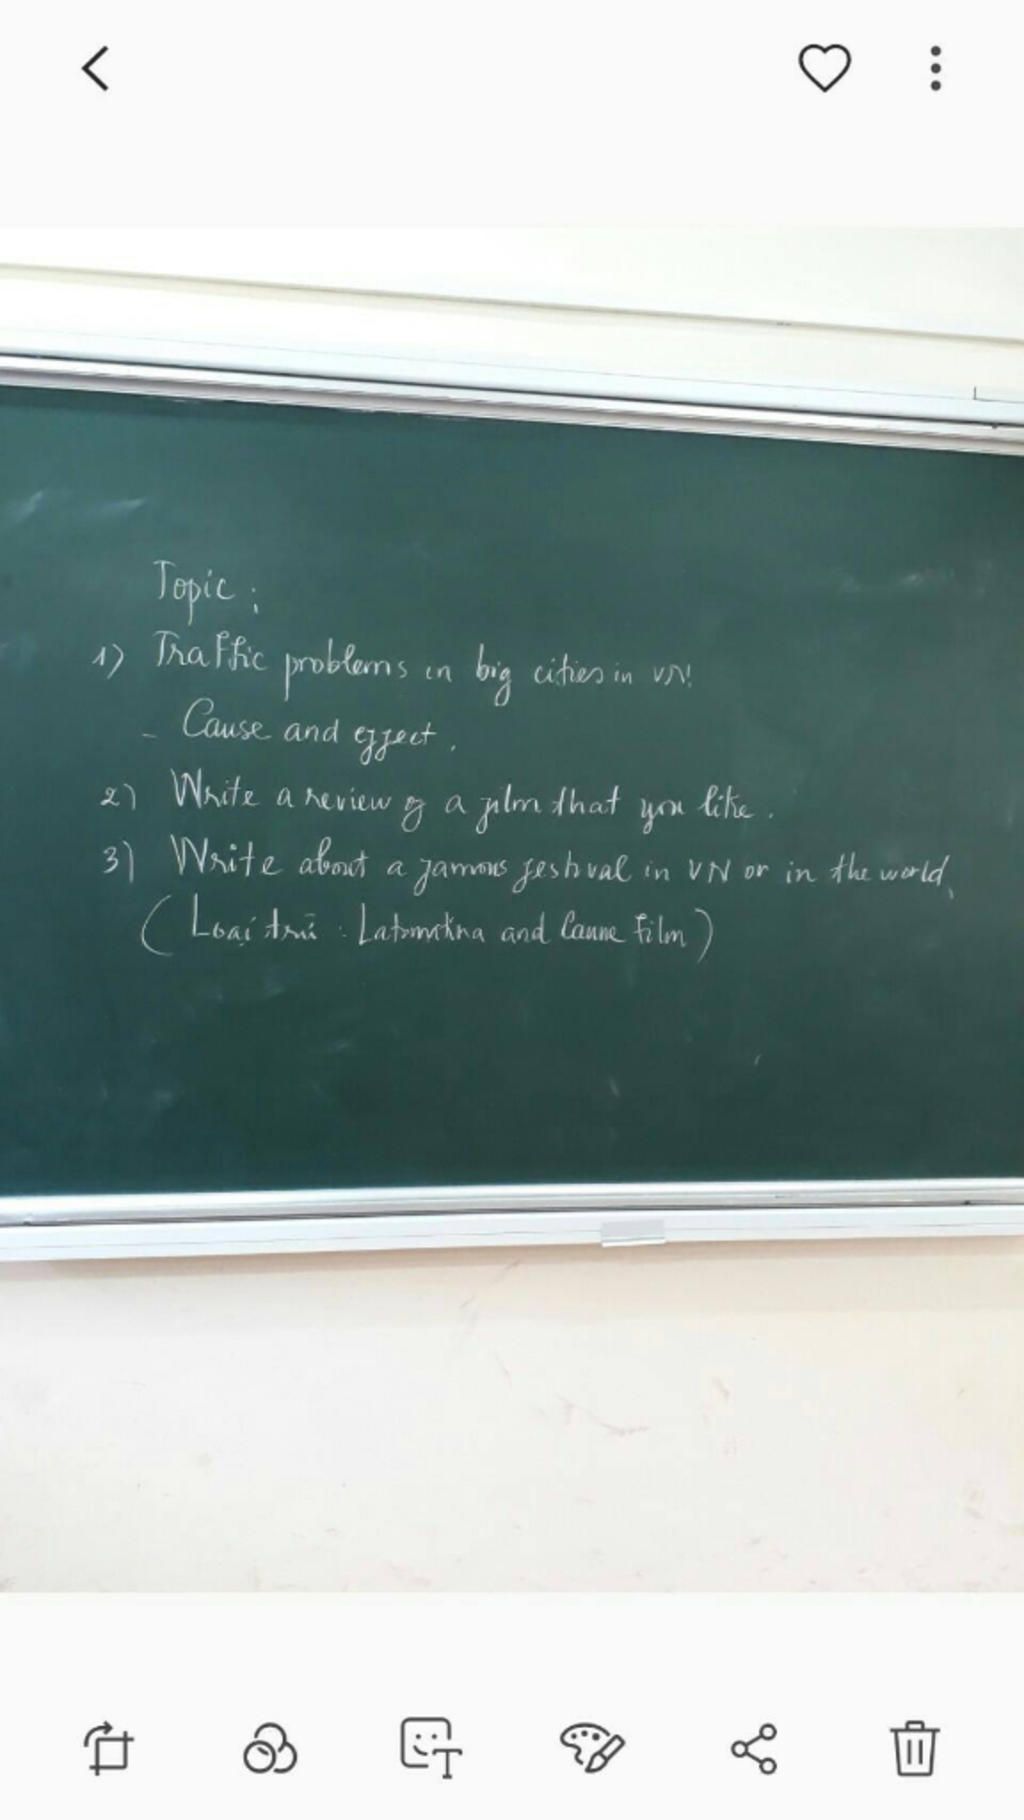 Topic :
1) Traffic problems in big cities in VN!
- Cause and effect.
2) Write a review of a film that you like.
3) Write about a famous festival in VN or in the world.
(Loại trừ : Latomatina and Canne film)